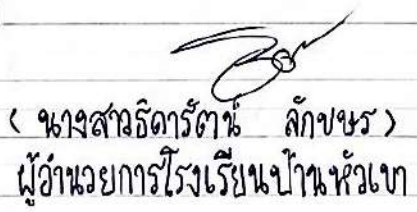 ( นางสาวธิดารัตน์ ลักขษร )
ผู้อำนวยการโรงเรียนบ้านหัวเขา